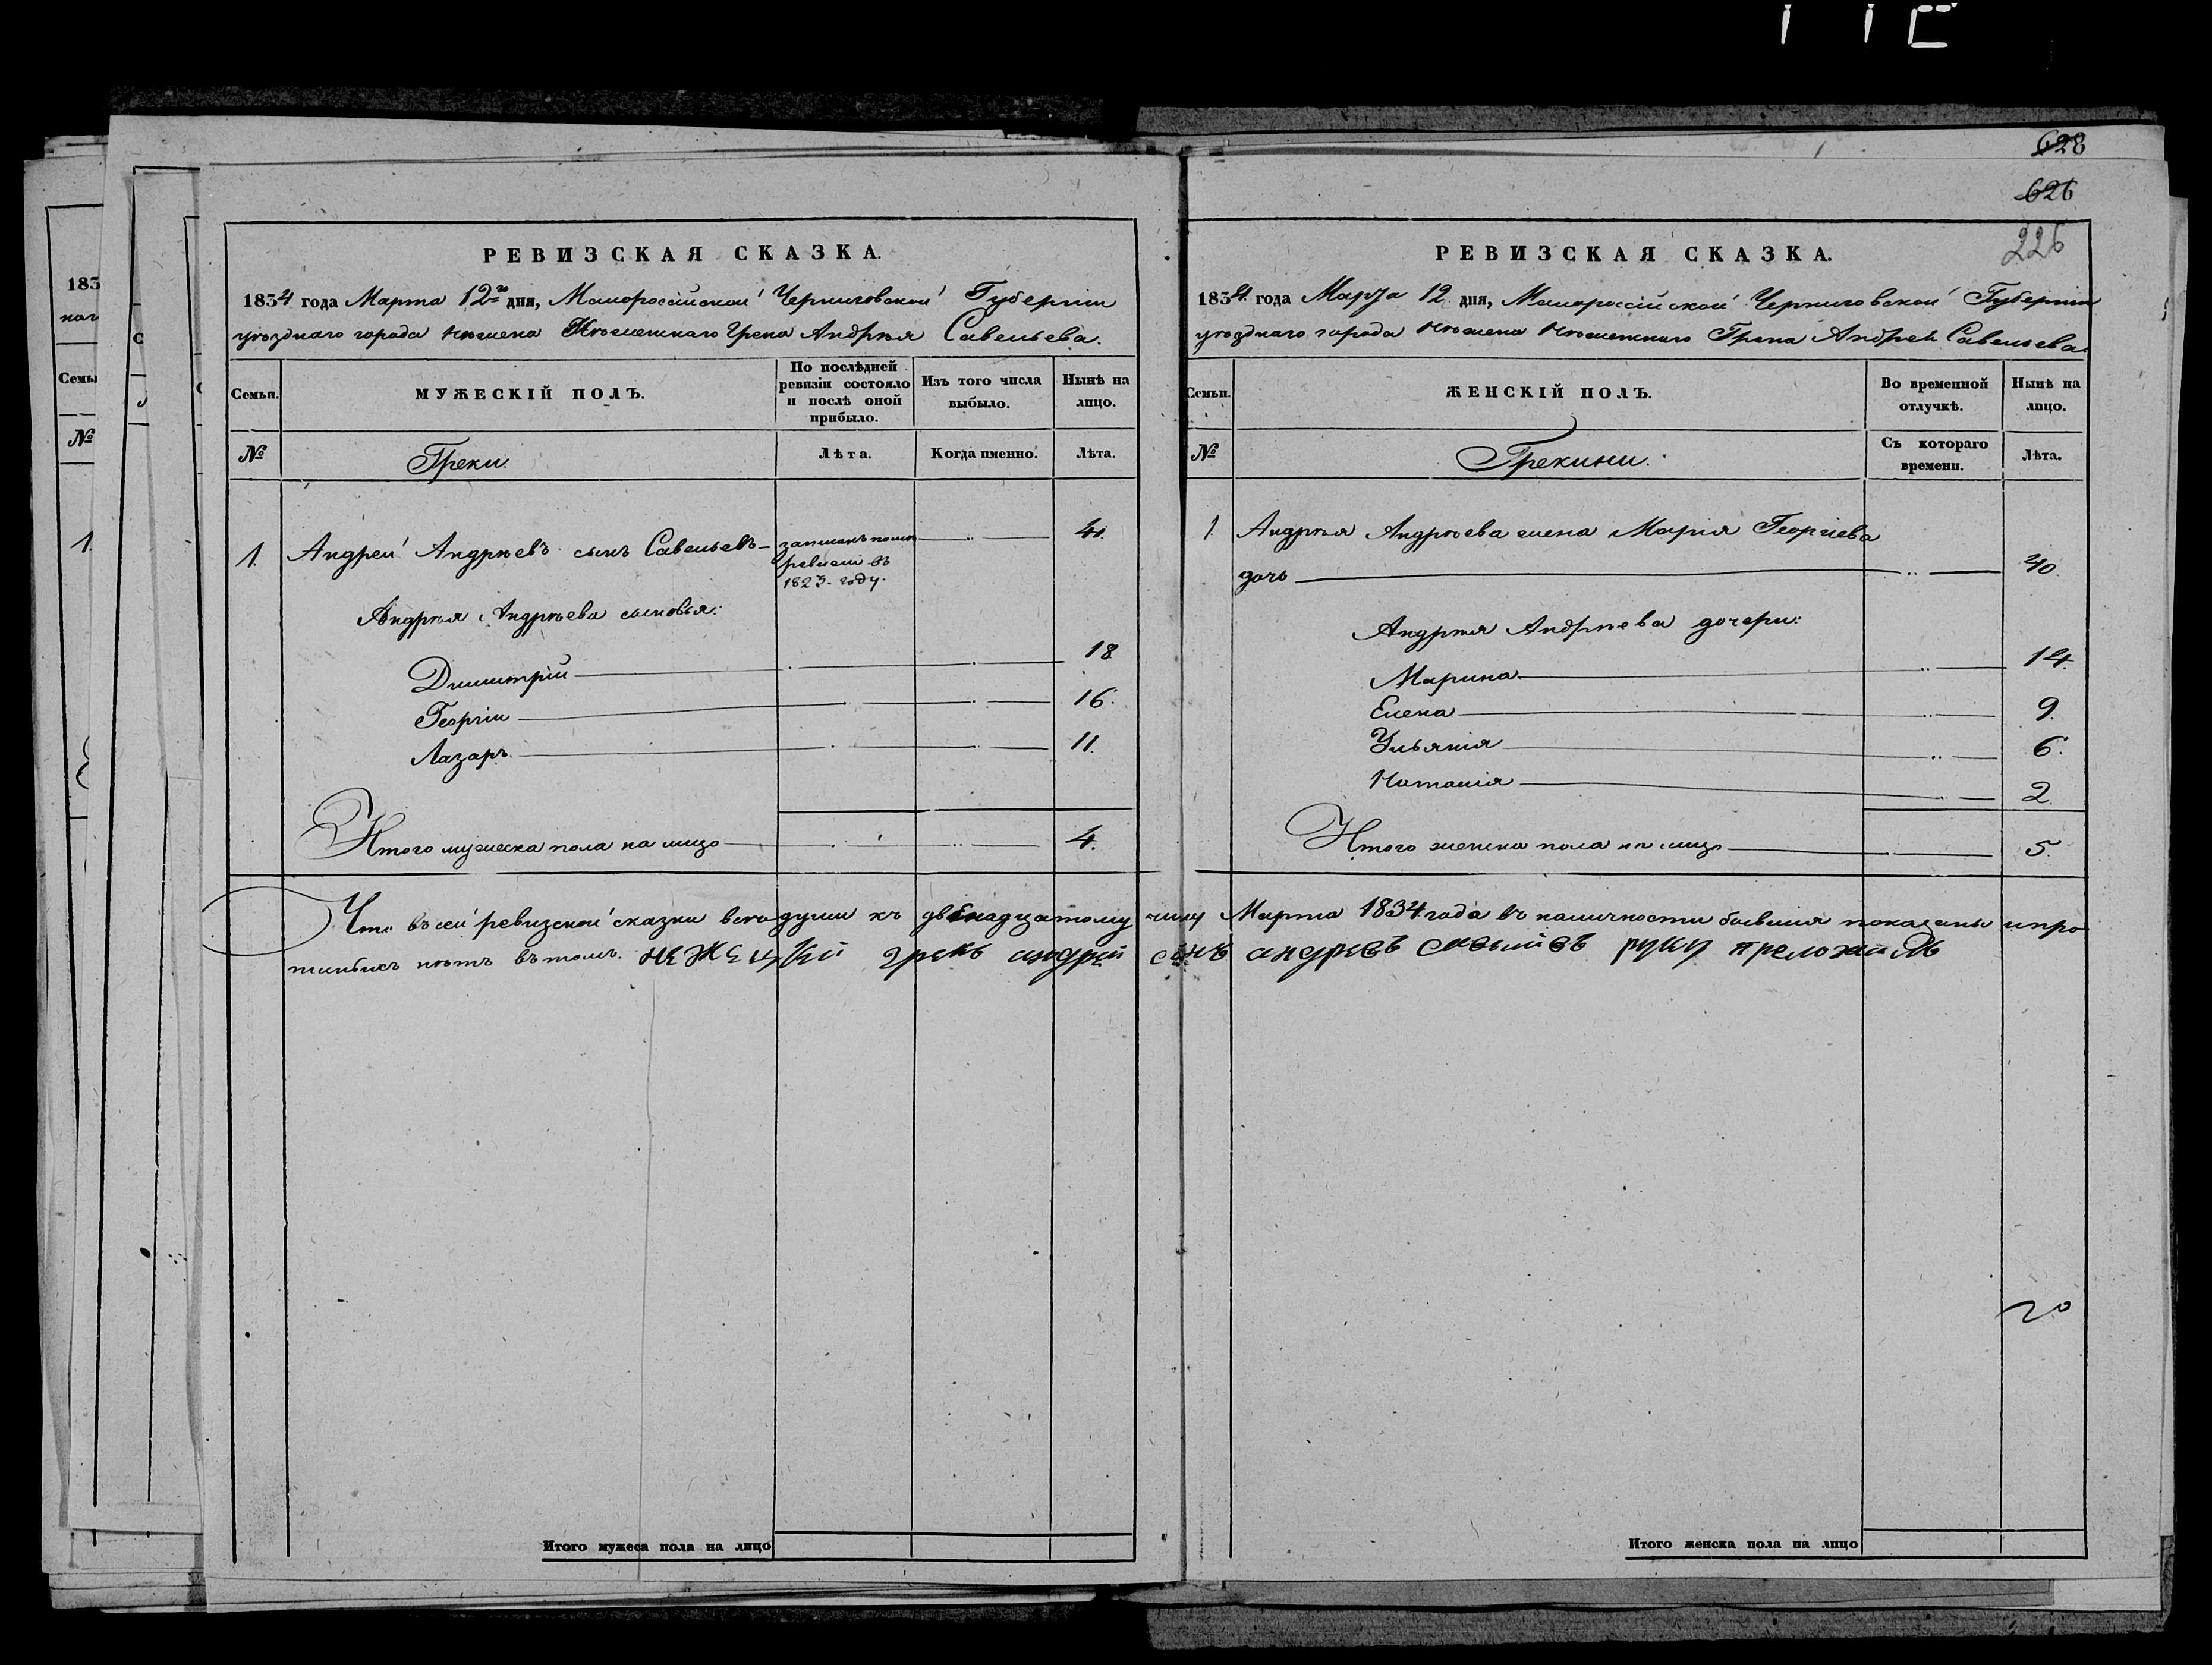 628
626
226
РЕВИЗСКАЯ СКАЗКА.
1834 года Марта 12го дня, Малороссійской Черниговской Губерніи
уѣзднаго города Нѣжина Нѣжинскаго Грека Андрѣя Савельева.
Семьи.
МУЖЕСКІЙ ПОЛЪ.
По послѣдней ревизіи состояло и послѣ оной прибыло.
Изъ того числа выбыло.
Нынѣ на лицо.
№
Греки.
Лѣта.
Когда именно.
Лѣта.
1. Андрей Андрѣевъ сынъ Савельевъ 41.
записанъ по
ревизіи въ
1823. году.
Андрѣя Андрѣева сыновья:
Димитрій 18
Георгій 16.
Лазарь 11.
Итого мужеска пола на лицо 4.
РЕВИЗСКАЯ СКАЗКА.
1834 года Марта 12 дня, Малороссійской Черниговской Губерніи
уѣзднаго города Нѣжина Нѣжинскаго Грека Андрей Савельева
Семьи.
ЖЕНСКІЙ ПОЛЪ.
Во временной отлучкѣ.
Нынѣ на лицо.
№
Грекини.
Съ котораго времени.
Лѣта.
1. Андрѣя Андрѣева жена Марія Георгіева
дочь 40.
Андрѣя Андрѣева дочери:
Марина 14.
Елена 9.
Ульянія 6.
Наталія 2.
Итого женска пола на лицо 5.
Что въ сей ревизской сказки всѣ души къ двенадцатому числу Марта 1834 года въ наличности бывшія показаны и про
нѣтъ въ томъ. нежецкій грекъ андрей сынъ андреевъ руку преложилъ
20
Итого мужеса пола на лицо
Итого женска пола на лицо
183
Семьи
№
1.